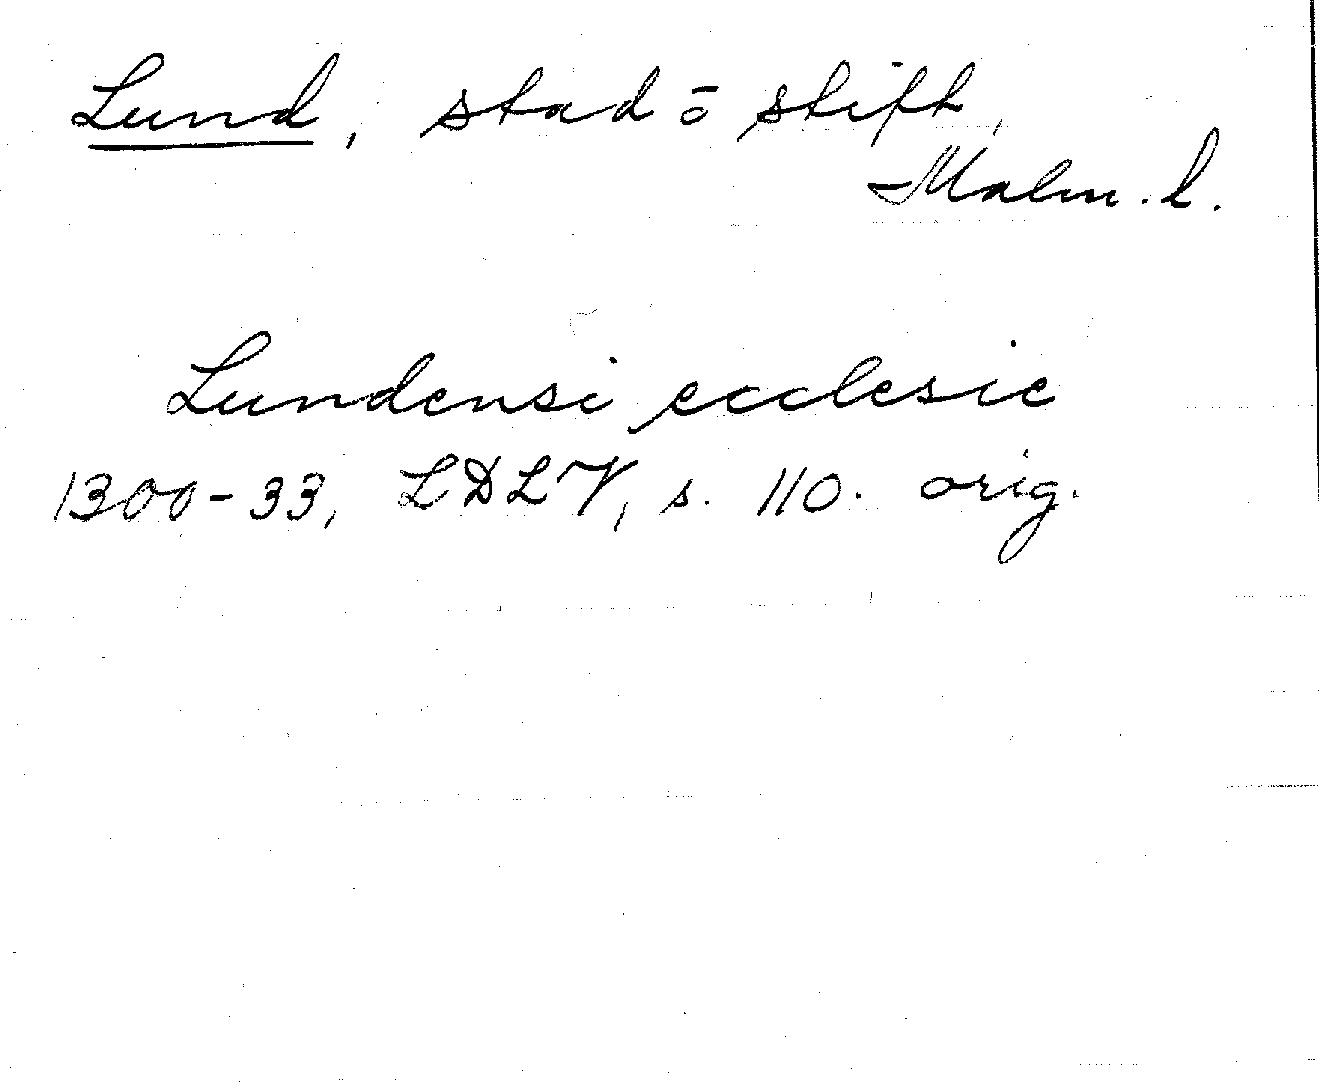 Lund, stad ō stift,
Malm. l.
Lundensi ecclesie
1300-33, LDLV, s. 110. orig.